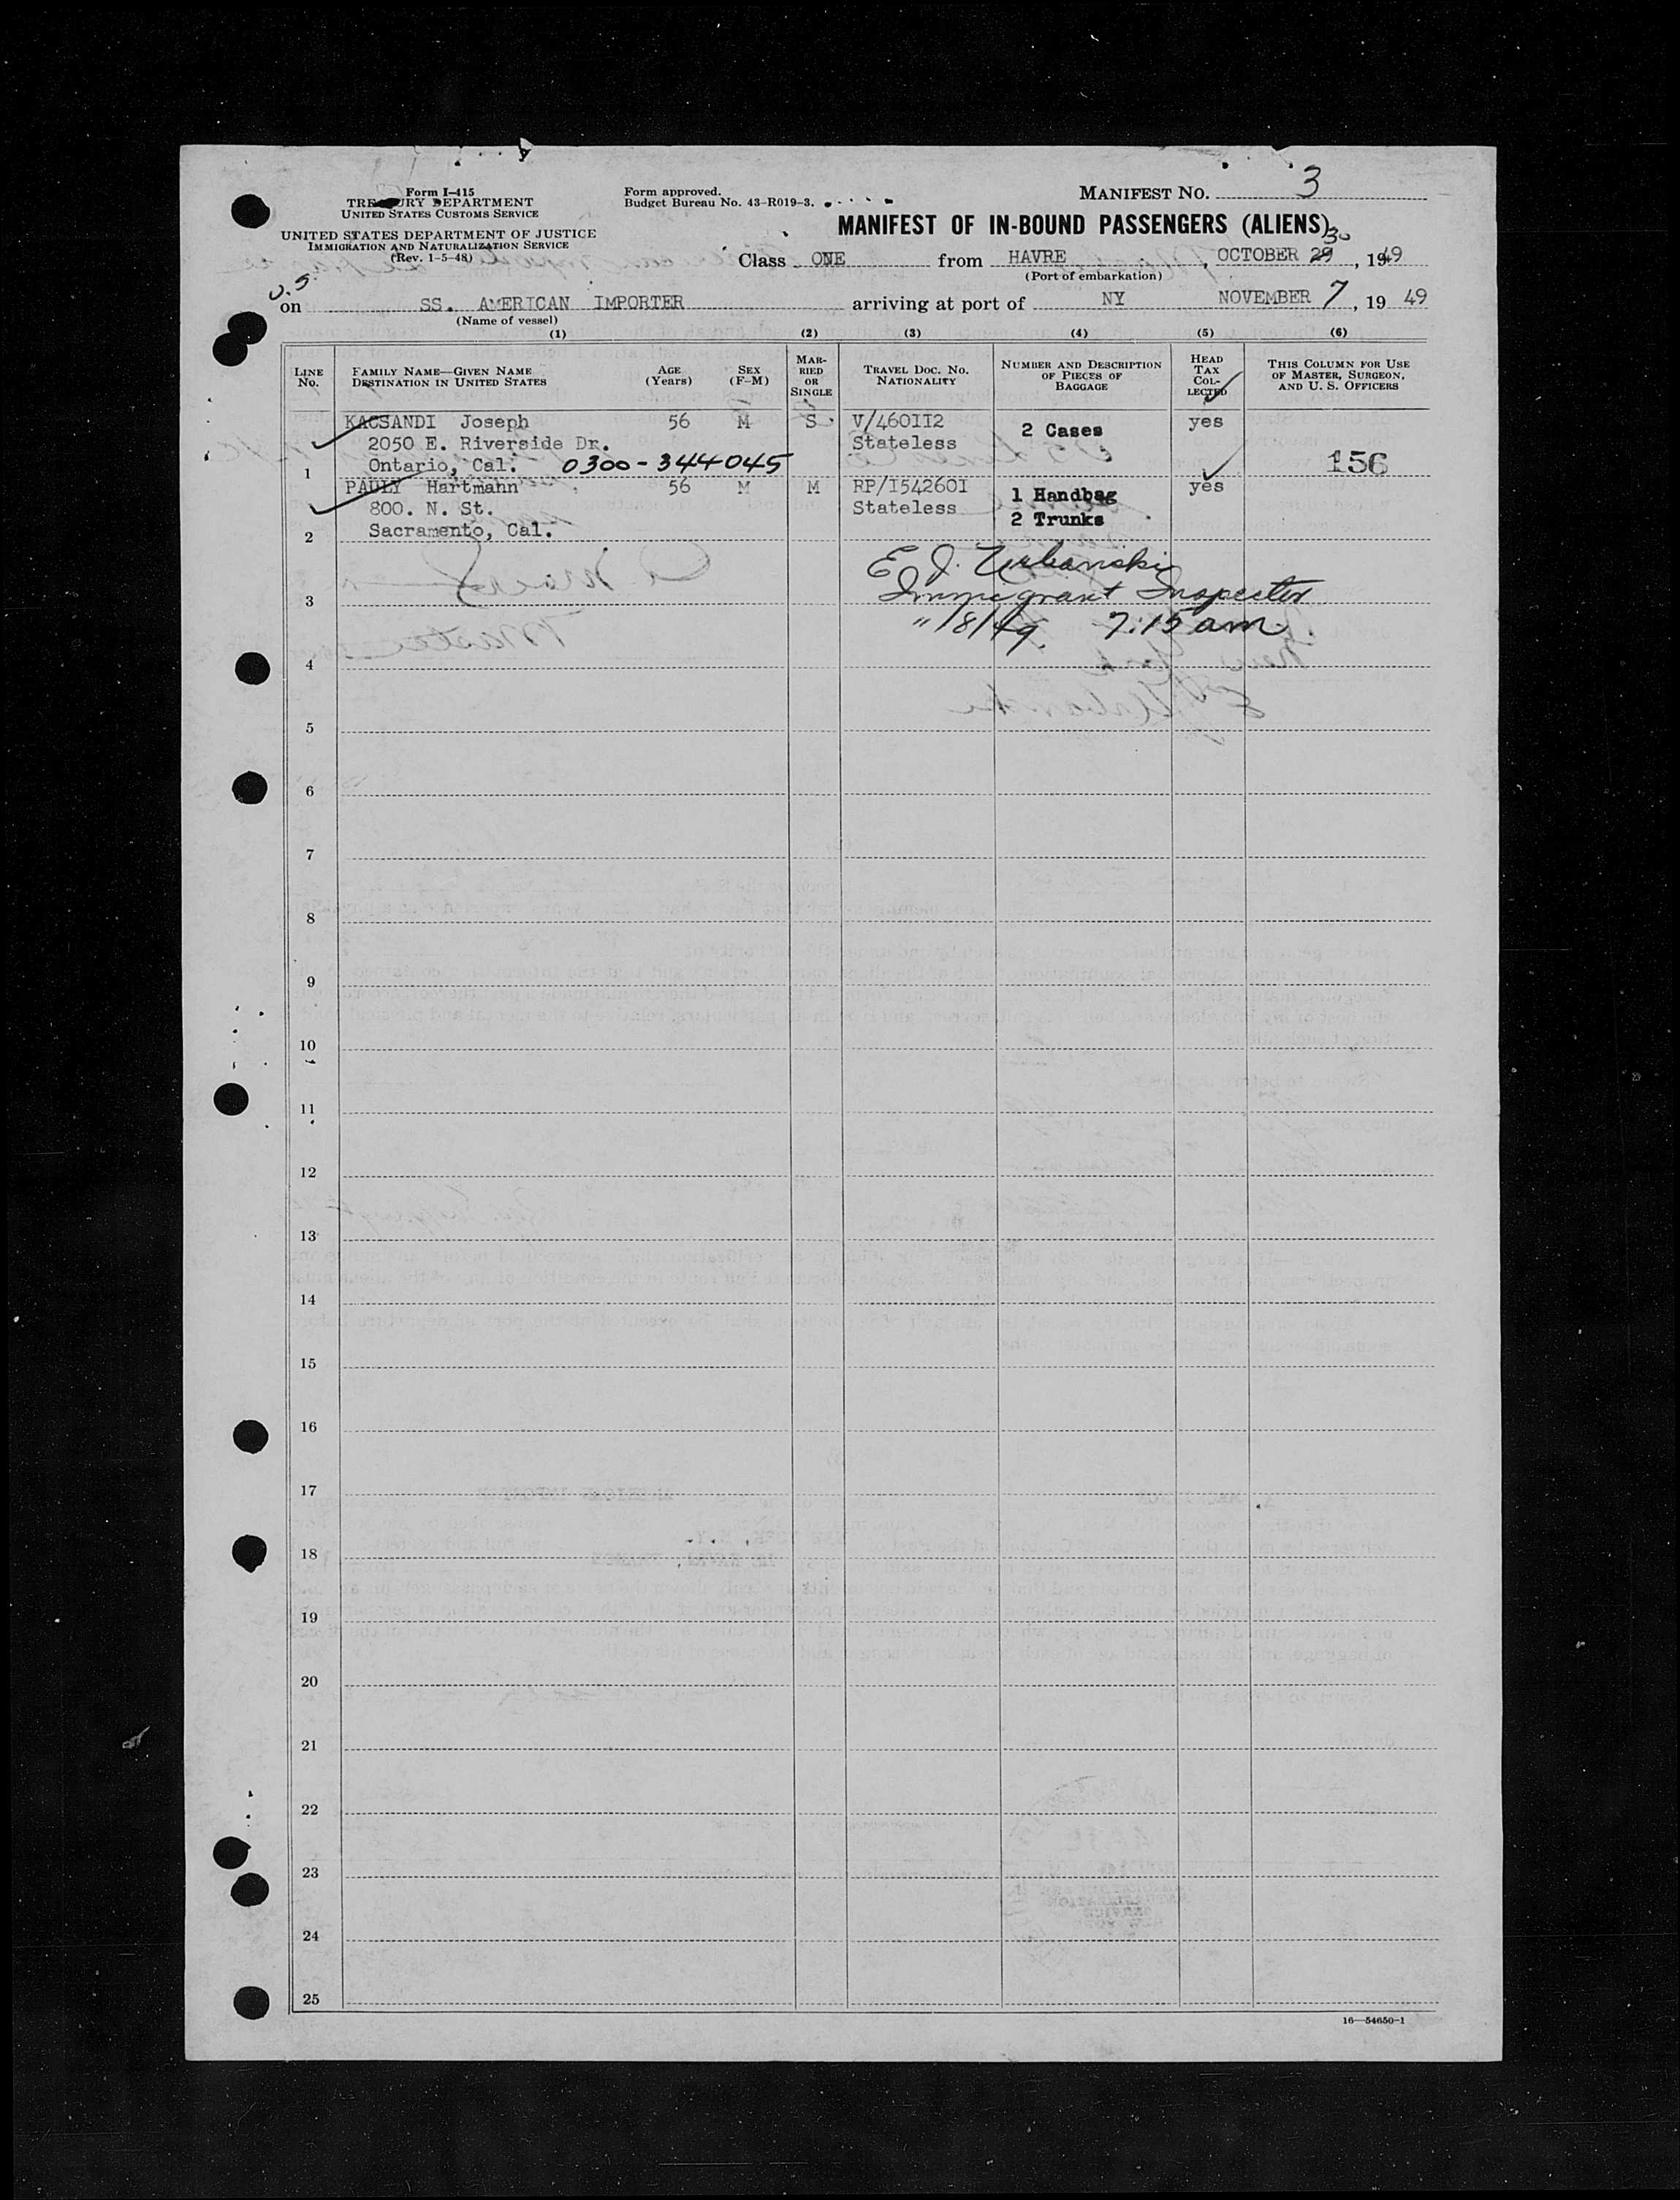 Form I-415
TREASURY DEPARTMENT
UNITED STATES CUSTOMS SERVICE
UNITED STATES DEPARTMENT OF JUSTICE
IMMIGRATION AND NATURALIZATION SERVICE
(Rev. 1-5-48)
Form approved.
Budget Bureau No. 43-R019-3.
MANIFEST NO. 3
MANIFEST OF IN-BOUND PASSENGERS (ALIENS)
Class ONE from HAVRE, OCTOBER 29 30, 1949
(Port of embarkation)
U.S.
on SS. AMERICAN IMPORTER arriving at port of NY NOVEMBER 7, 19 49
(Name of vessel)
(1) (2) (3) (4) (5) (6)
LINE No. FAMILY NAME—GIVEN NAME DESTINATION IN UNITED STATES AGE (Years) SEX (F-M) MARRIED OR SINGLE TRAVEL DOC. NO. NATIONALITY NUMBER AND DESCRIPTION OF PIECES OF BAGGAGE HEAD TAX COLLECTED THIS COLUMN FOR USE OF MASTER, SURGEON, AND U. S. OFFICERS
KACSANDI Joseph 56 M S V/460112 2 Cases yes
2050 E. Riverside Dr. Stateless
1 Ontario, Cal. 0300-344045 156
PAULY Hartmann 56 M M RP/1542601 1 Handbag yes
800. N. St. Stateless 2 Trunks
2 Sacramento, Cal.
E. J. Urbanski
3 Immigrant Inspector
11/8/49. 7:15 am.
4
5
6
7
8
9
10
11
12
13
14
15
16
17
18
19
20
21
22
23
24
25
16—54650-1